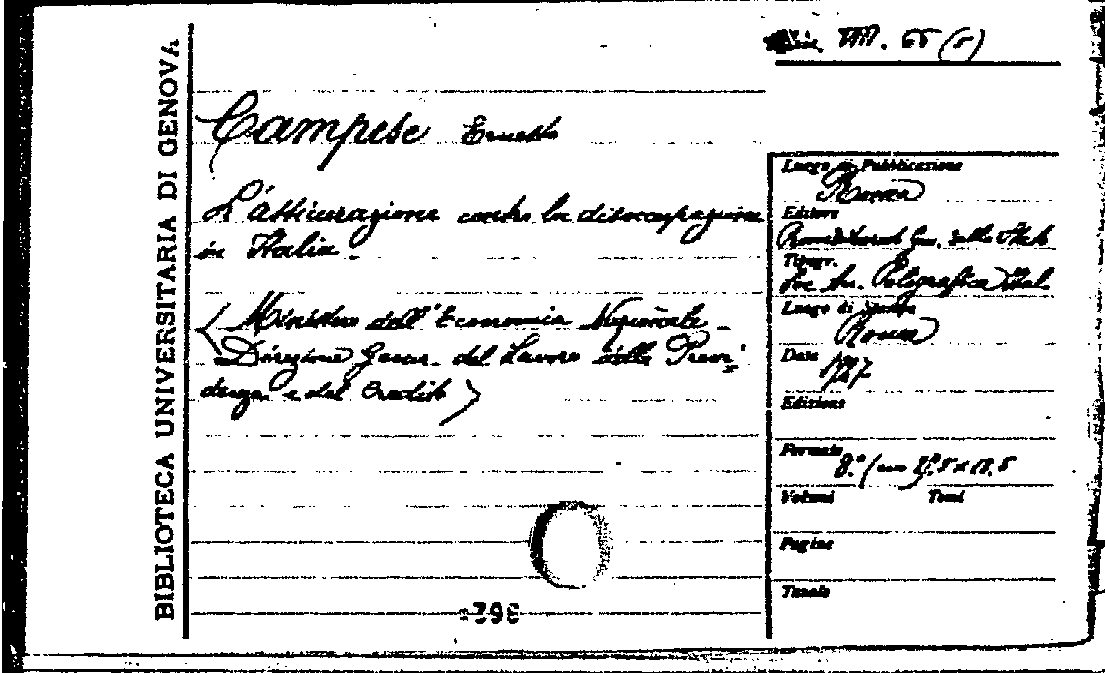 BIBLIOTECA UNIVERSITARIA DI GENOVA
Campese Ernesto
L'assicurazione contro la disoccupazione
in Italia.
(Ministero dell'Economia Nazionale -
Direzione Gener. del Lavoro della Previ-
denza e del Credito)
398
Luogo di Pubblicazione
Roma
Editore
Provveditorato Gen. dello Stato
Tipogr.
Soc. An. Poligrafica Ital.
Luogo di Stampa
Roma
Data 1927
Edizione
Formato
8.º (cm
Volumi Tomi
Pagine
Tavole